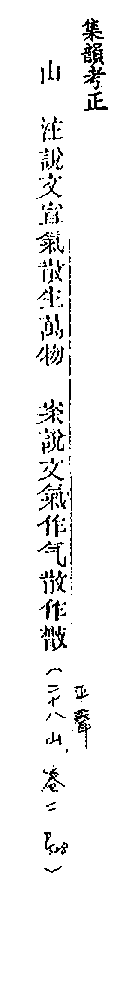 集韻考正
山　注說文宣氣散生萬物　案說文氣作气散作㪔（平聲二十八山，卷二，P58）